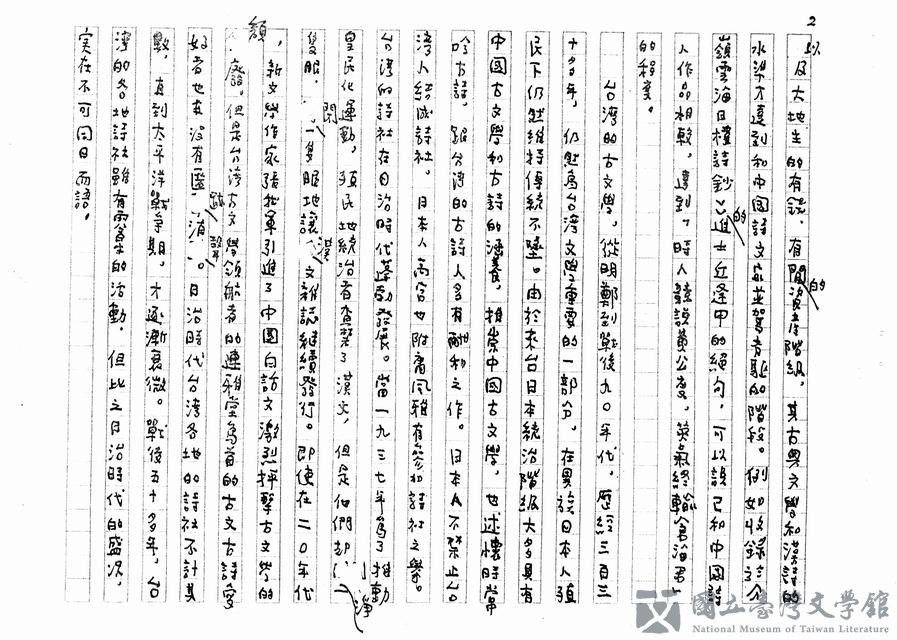 2
以及大地主的有錢,有閒資產階級,其古典文學和漢詩的
水準才達到和中國詩文並駕齊驅的階段。例如收錄於《
嶺雲海日樓詩鈔》的進士丘逢甲的絕句,可以說已和中國詩
人作品相較,達到「時人競說黃公度,英氣終輸倉海君」
的程度。
台灣的古文學,從明鄭到戰後九〇年代,歷經三百三
十多年,仍然為台灣文學重要的一部分。在異族日本人殖
民下仍然維持傳統不墜。由於來台日本統治階級大多具有
中國古文學和古詩的涵養,推崇中國古文學,也述懷時常
吟古詩,跟台灣的古詩人多有酬和之作。日本人不禁止台
灣人結成詩社。日本人高官也附庸風雅有參加詩社之舉。
台灣的詩社在日治時代蓬勃發展。當一九三七年為了推動
皇民化運動,殖民地統治者查禁了漢文,但是他們卻
隻眼開一隻眼地讓漢文雜誌繼續發行。即使在二〇年代
,新文學作家張我軍引進了中國白話文激烈抨擊古文學的
但是台灣古文學領航者的連雅堂為首的古文古詩愛
好者也並沒有偃旗。日治時代台灣各地的詩社不計其
數,直到太平洋戰爭期,才逐漸衰微。戰後五十多年,台
灣的各地詩社雖有零星的活動,但比之日治時代的盛況,
実在不可同日而語。
國立臺灣文學館
National Museum of Taiwan Literature